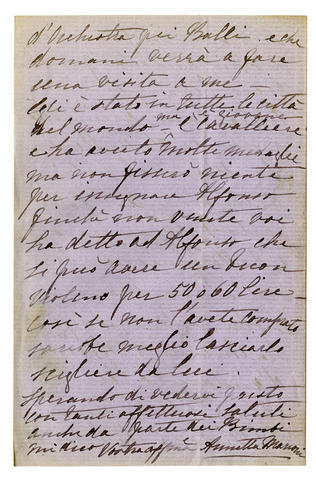 d'orchestra pei Balli e che
domani verrà a fare
una visita a me
Egi è stato in tutte le città
del mondo ma è giovane
è Cavalliere
e ha avuto molte medaglie
ma non fisserò niente
per insegnare Alfonso
finchè non venite voi
ha detto ad Alfonso che
si può avere un buon
Violino per 50 o 60 lire
così se non l'avete comprato
sarebbe meglio lasciarlo
scigliere da lui.
Sperando di vedervi presto
con tanti affettuosi saluti
anche da parte dei Bimbi
mi dico Vostra affma Annetta